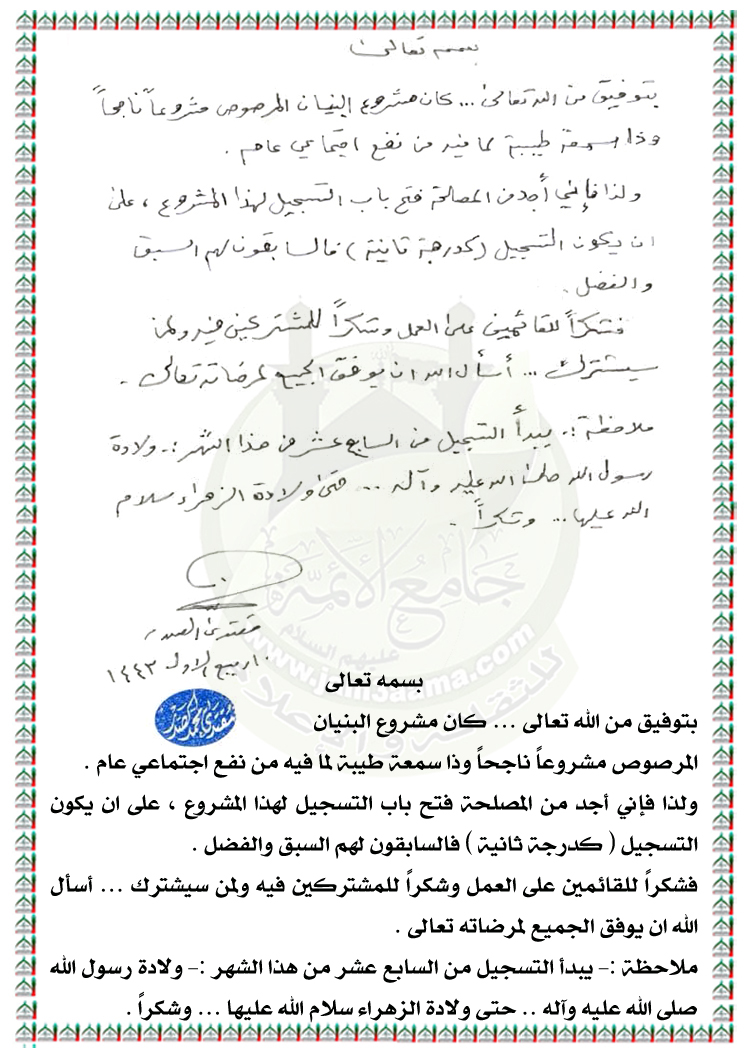 بسمه تعالى
بتوفيق من الله تعالى ... كان مشروع البنيان المرصوص مشروعاً ناجحاً
وذا سمعة طيبة لما فيه من نفع اجتماعي عام .
ولذا فإني أجد من المصلحة فتح باب التسجيل لهذا المشروع ، على
ان يكون التسجيل (كدرجة ثانية) فالسابقون لهم السبق
والفضل .
فشكراً للقائمين على العمل وشكراً للمشتركين فيه ولمن
سيشترك ... أسأل الله ان يوفق الجميع لمرضاته تعالى .
ملاحظة :- يبدأ التسجيل من السابع عشر من هذا الشهر :- ولادة
رسول الله صلى الله عليه وآله ... حتى ولادة الزهراء سلام
الله عليها ... وشكراً .
مقتدى الصدر
١٠ ربيع الاول ١٤٤٣
جامع الأئمة
عليهم السلام
www.jam3aama.com
للثقافة والإعلام
مقتدى محمد الصدر
بسمه تعالى
بتوفيق من الله تعالى ... كان مشروع البنيان
المرصوص مشروعاً ناجحاً وذا سمعة طيبة لما فيه من نفع اجتماعي عام .
ولذا فإني أجد من المصلحة فتح باب التسجيل لهذا المشروع ، على ان يكون
التسجيل ( كدرجة ثانية ) فالسابقون لهم السبق والفضل .
فشكراً للقائمين على العمل وشكراً للمشتركين فيه ولمن سيشترك ... أسأل
الله ان يوفق الجميع لمرضاته تعالى .
ملاحظة :- يبدأ التسجيل من السابع عشر من هذا الشهر :- ولادة رسول الله
صلى الله عليه وآله .. حتى ولادة الزهراء سلام الله عليها ... وشكراً .